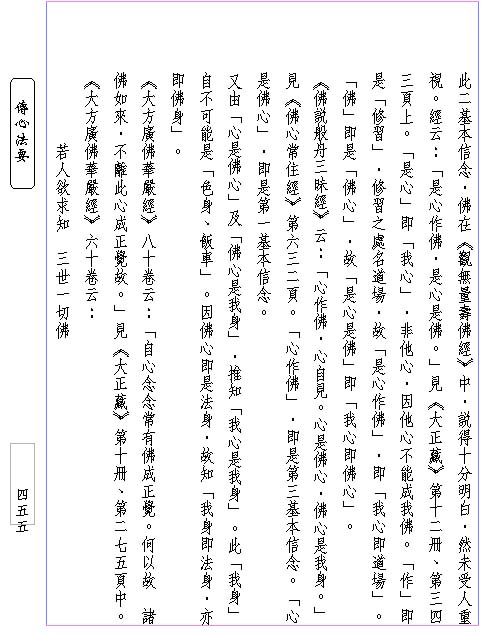 此二基本信念，佛在《觀無量壽佛經》中，說得十分明白，然未受人重
視。經云：「是心作佛，是心是佛。」見《大正藏》第十二冊、第三四
三頁上。「是心」即「我心」，非他心，因他心不能成我佛。「作」即
是「修習」，修習之處名道場，故「是心作佛」，即「我心即道場」。
「佛」即是「佛心」，故「是心是佛」即「我心即佛心」。
《佛說般舟三昧經》云：「心作佛，心自見。心是佛心，佛心是我身。」
見《佛心常住經》第六三二頁。「心作佛」，即是第三基本信念。「心
是佛心」，即是第一基本信念。
又由「心是佛心」及「佛心是我身」，推知「我心是我身」。此「我身」
自不可能是「色身、飯車」。因佛心即是法身，故知「我身即法身，亦
即佛身」。
《大方廣佛華嚴經》八十卷云：「自心念念常有佛成正覺。何以故　諸
佛如來，不離此心成正覺故。」見《大正藏》第十冊、第二七五頁中。
《大方廣佛華嚴經》六十卷云：
若人欲求知　三世一切佛
傳心法要
四五五